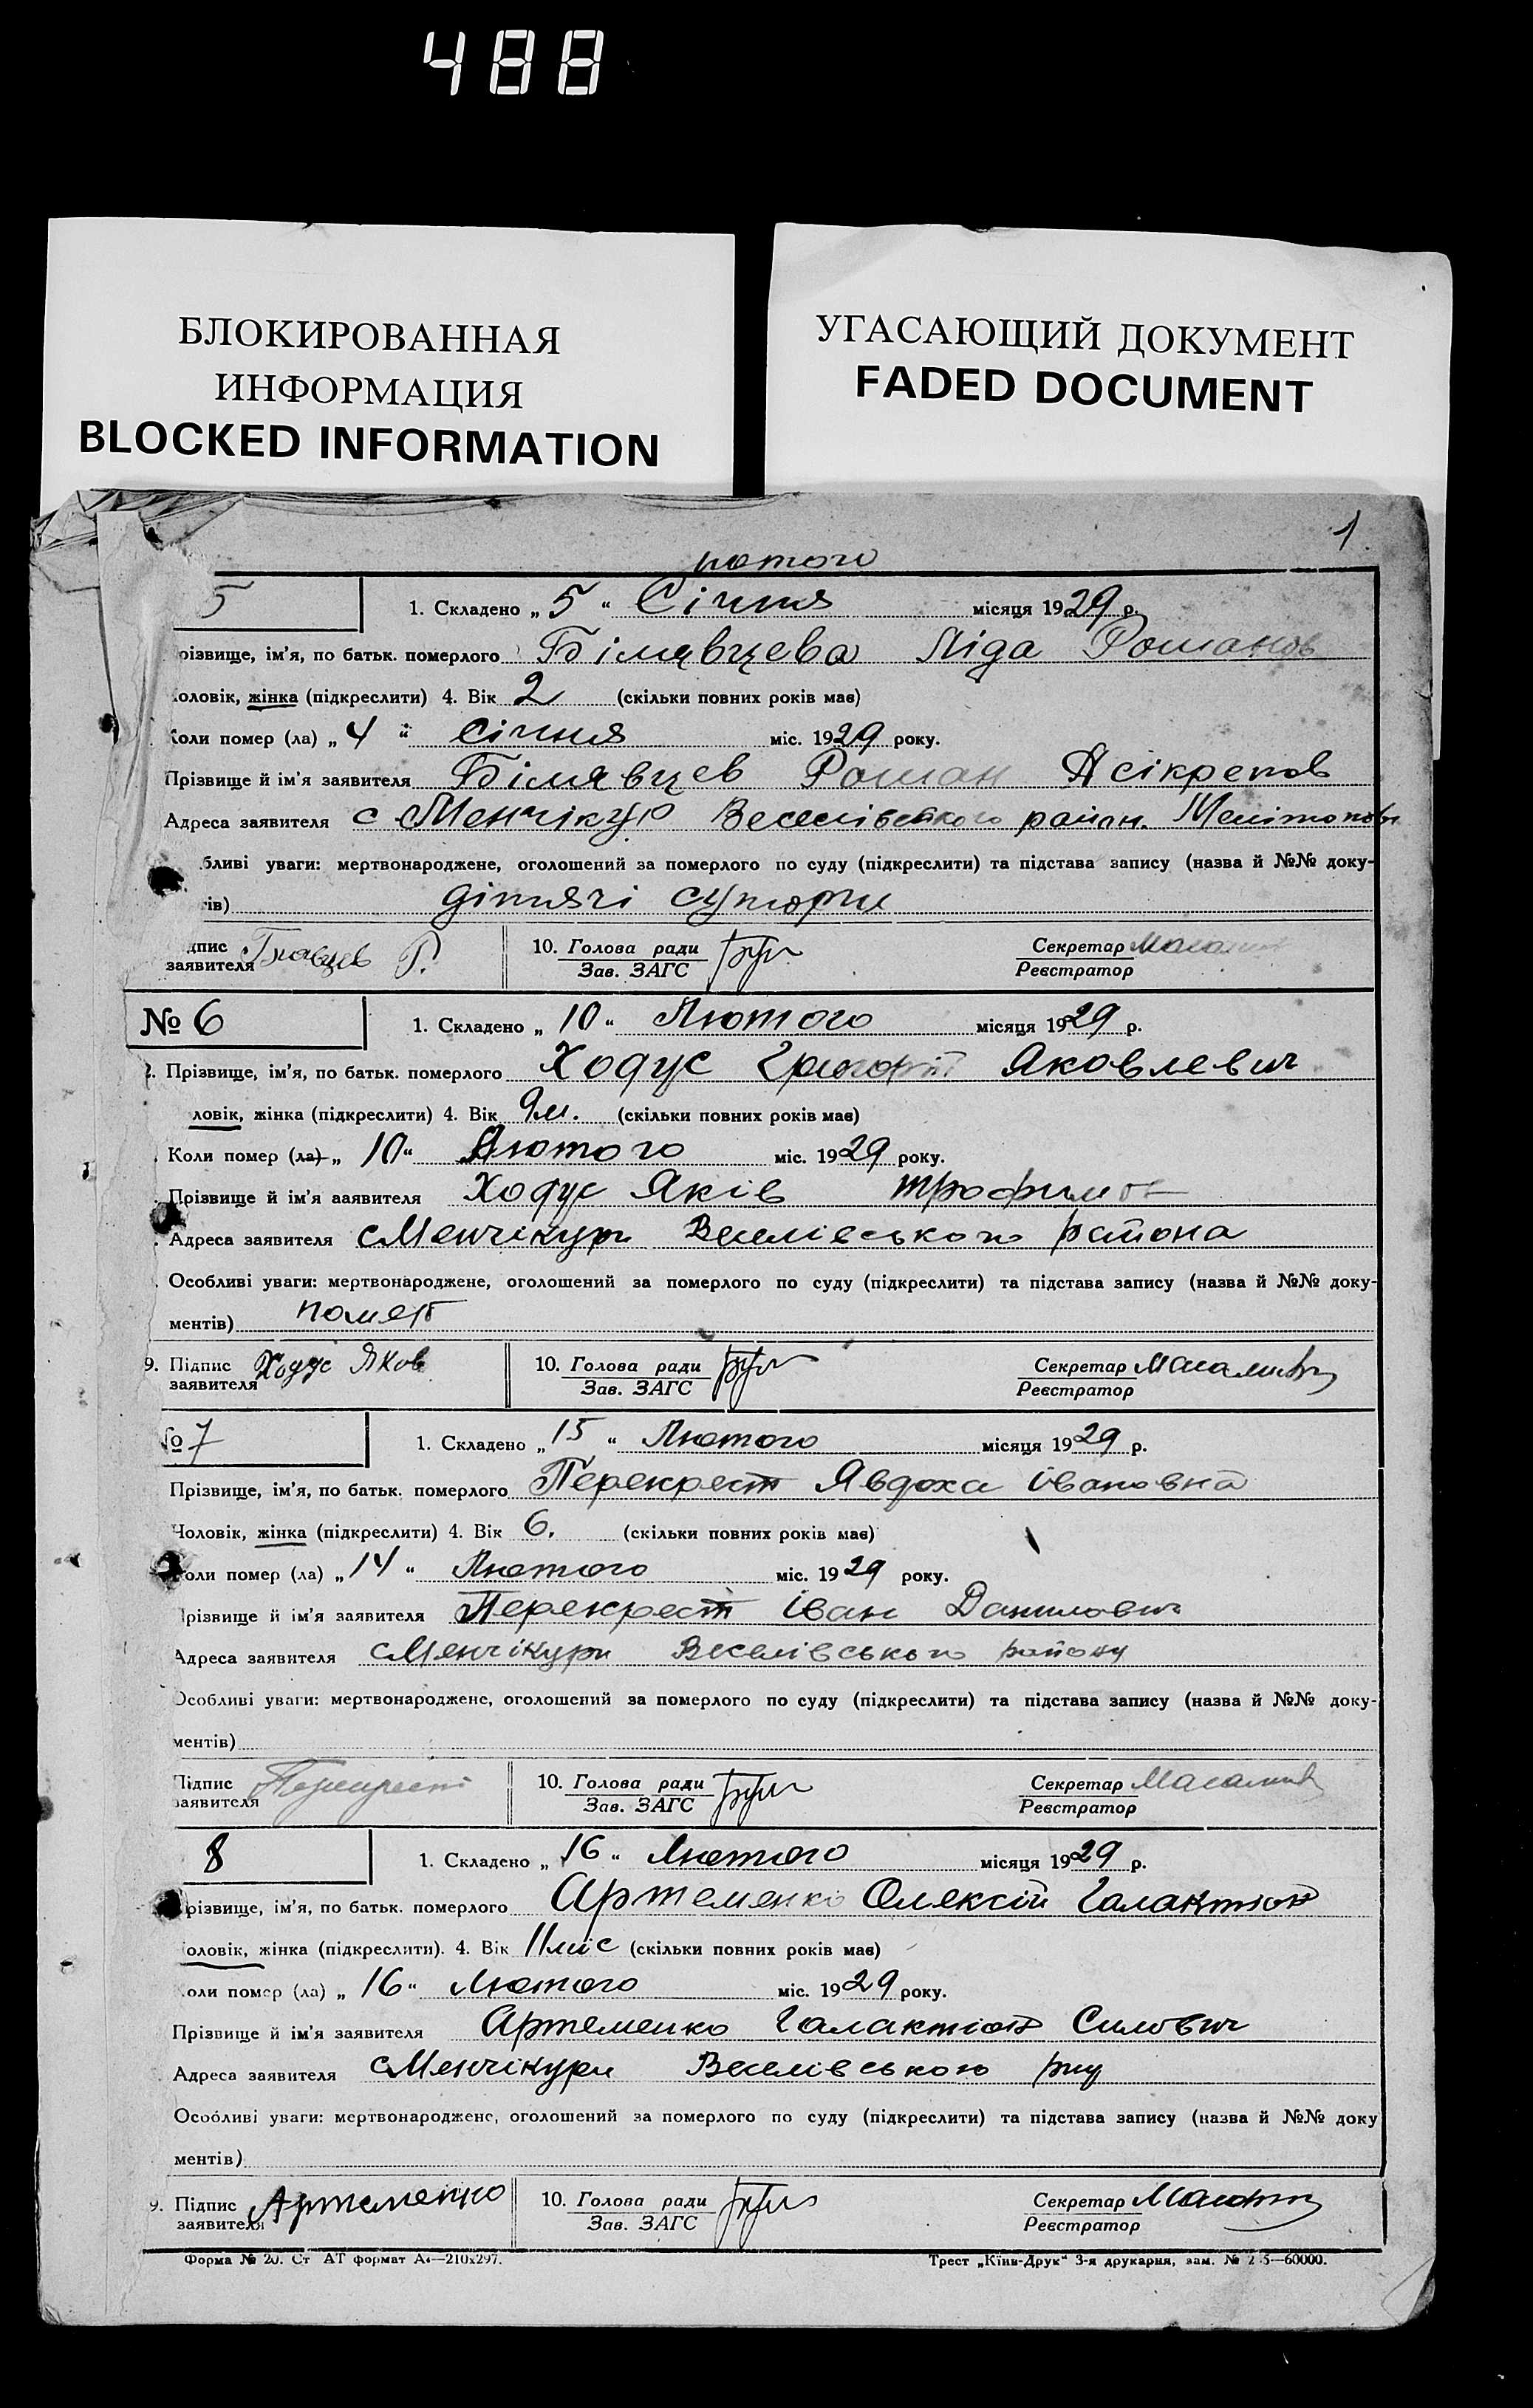 488
БЛОКИРОВАННАЯ
ИНФОРМАЦИЯ
BLOCKED INFORMATION
УГАСАЮЩИЙ ДОКУМЕНТ
FADED DOCUMENT
1
5
1. Складено „ 5 “ Січня місяця 1929 р.
різвище, ім'я, по батьк. померлого Білявцева Ліда Романов
оловік, жінка (підкреслити) 4. Вік 2 (скільки повних років має)
Коли помер (ла) „ 4 “ Січня міс. 1929 року.
Прізвище й ім'я заявителя Білявцев Роман
Адреса заявителя с Менчікур Веселівського район. Мелітопов
бливі уваги: мертвонароджене, оголошений за померлого по суду (підкреслити) та підстава запису (назва й №№ доку-
ів) дітячі
дпис заявителя Р.
10. Голова ради
Зав. ЗАГС
Секретар
Реєстратор
№ 6
1. Складено „ 10 “ Лютого місяця 1929 р.
2. Прізвище, ім'я, по батьк. померлого Ходус Григорій Яковлевич
ловік, жінка (підкреслити) 4. Вік 9м. (скільки повних років має)
Коли помер (ла) „ 10 “ Лютого міс. 1929 року.
Прізвище й ім'я заявителя Ходус Яків Трофимов
Адреса заявителя с Менчікури Веселівського района
Особливі уваги: мертвонароджене, оголошений за померлого по суду (підкреслити) та підстава запису (назва й №№ доку-
ментів)
9. Підпис заявителя Ходус Яков
10. Голова ради
Зав. ЗАГС
Секретар
Реєстратор
№ 7
1. Складено „ 15 “ Лютого місяця 1929 р.
Прізвище, ім'я, по батьк. померлого Перекрест Явдоха Івановна
Чоловік, жінка (підкреслити) 4. Вік 6. (скільки повних років має)
оли помер (ла) „ 14 “ Лютого міс. 1929 року.
різвище й ім'я заявителя Перекрест Іван Данилович
Адреса заявителя с Менчікури Веселівського району
Особливі уваги: мертвонароджене, оголошений за померлого по суду (підкреслити) та підстава запису (назва й №№ доку-
ментів)
Підпис заявителя Перекрест
10. Голова ради
Зав. ЗАГС
Секретар
Реєстратор
8
1. Складено „ 16 “ Лютого місяця 1929 р.
різвище, ім'я, по батьк. померлого Артеменко Олексій Галактіон
оловік, жінка (підкреслити). 4. Вік 11 міс (скільки повних років має)
оли помер (ла) „ 16 “ Лютого міс. 1929 року.
Прізвище й ім'я заявителя Артеменко Галактіон Силович
Адреса заявителя с Менчікури Веселівського р-ну
Особливі уваги: мертвонароджене, оголошений за померлого по суду (підкреслити) та підстава запису (назва й №№ доку
ментів)
9. Підпис заявителя Артеменко
10. Голова ради
Зав. ЗАГС
Секретар
Реєстратор
Форма № 20. Ст АТ формат А4—210x297.
Трест „Київ-Друк“ 3-я друкарня, зам. № 2 5—60000.